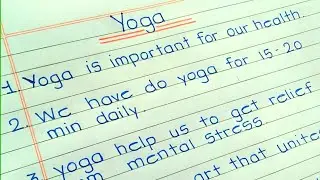 Yoga
1. Yoga is important for our health.
2. We have do yoga for 15-20
min daily.
3. yoga help us to get relief
mental stress.
art that unites